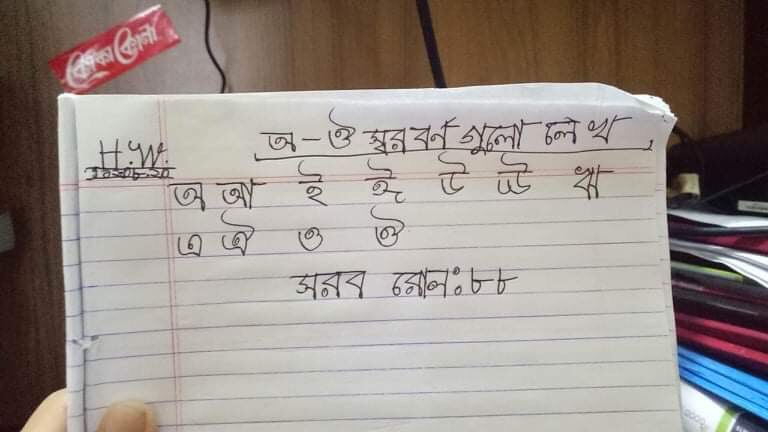 কোকা কোলা
H.W.
অ-ঔ স্বরবর্ণ গুলো লেখ
অ আ ই ঈ উ ঊ ঋ
এ ঐ ও ঔ
সরব রোল:৮৮